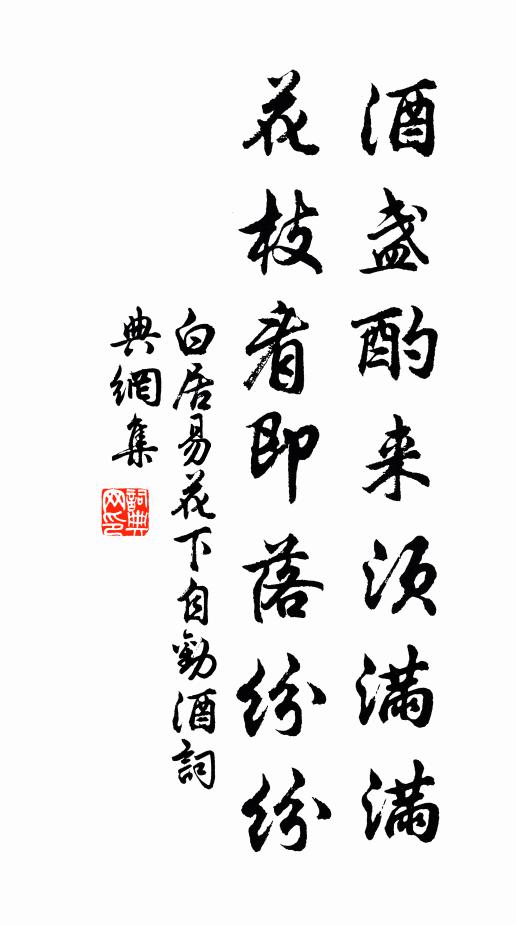 酒盏酌来须满满
花枝看即落纷纷
白居易花下自勸酒詞
典網集
詞典
网印